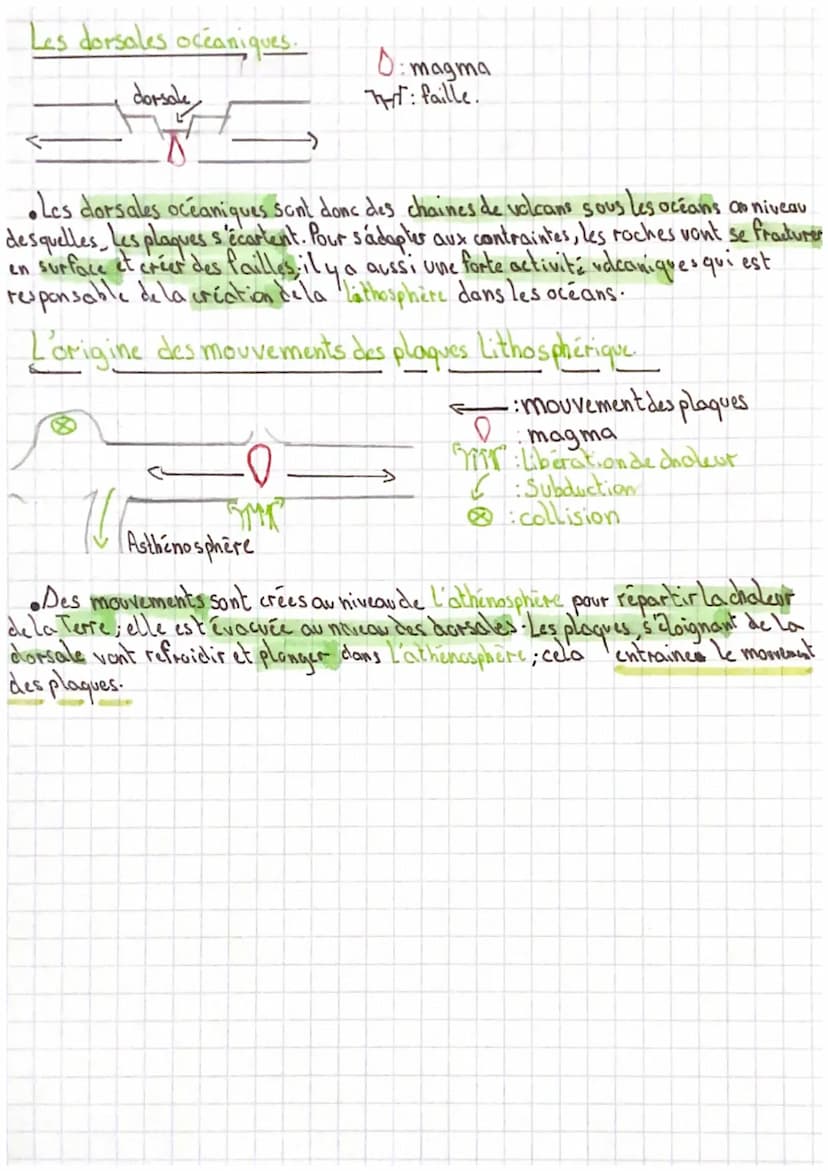 Les dorsales océaniques.
: magma
: faille.
dorsale
• Les dorsales océaniques sont donc des chaines de volcans sous les océans au niveau
desquelles les plaques s'écartent. Pour s'adapter aux contraintes, les roches vont se fracturer
en surface et créer des failles; il y a aussi une forte activité volcaniques qui est
responsable de la création de la lithosphère dans les océans.
L'origine des mouvements des plaques Lithosphérique.
: mouvement des plaques
: magma
: Libération de chaleur
: Subduction
: collision
Asthénosphère
• Des mouvements sont crées au niveau de L'athénosphère pour répartir la chaleur
de la Terre; elle est évacuée au niveau des dorsales. Les plaques s'éloignant de la
dorsale vont refroidir et plonger dans L'athénosphère; cela entraines le mouvement
des plaques.